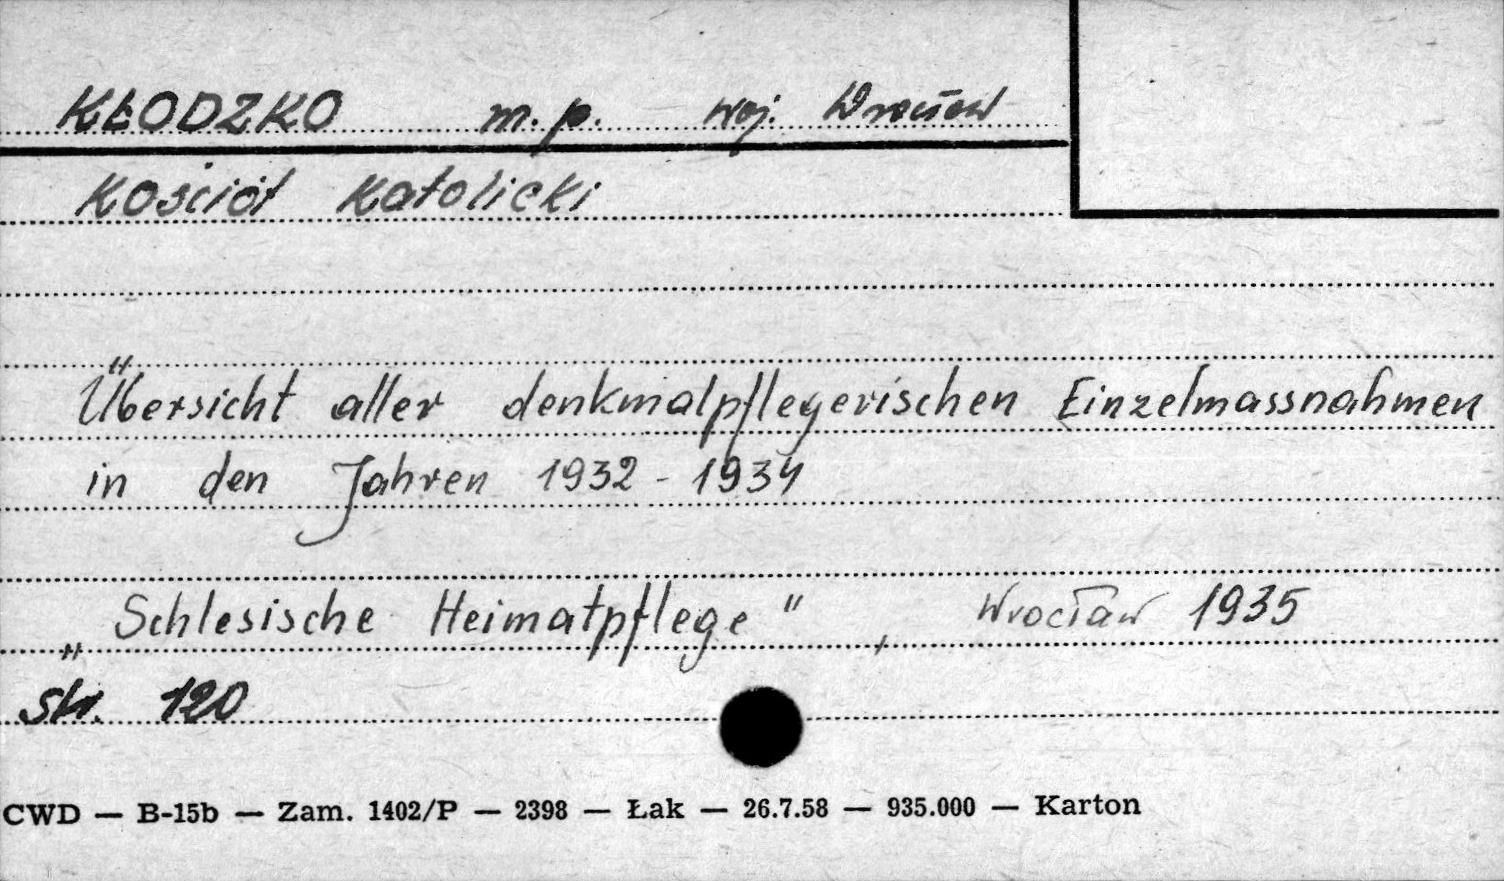 KŁODZKO m.p. woj. Wrocław
Kościół Katolicki
Übersicht aller denkmalpflegerischen Einzelmassnahmen
in den Jahren 1932 - 1934
„Schlesische Heimatpflege", Wrocław 1935
str. 120
CWD — B-15b — Zam. 1402/P — 2398 — Łak — 26.7.58 — 935.000 — Karton